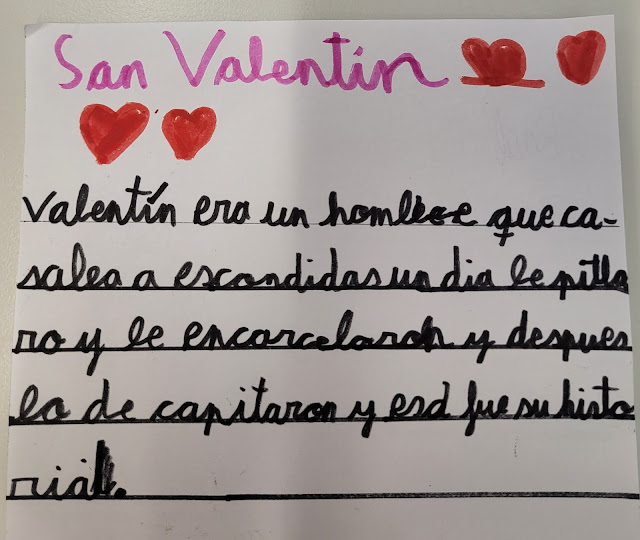 San Valentín
Valentín era un hombre que ca-
saba a escondidas un dia le pilla
ro y le encarcelaron y despues
lo de capitaron y esa fue su histo
rial.